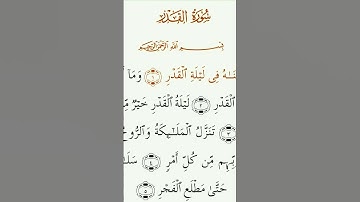 سُورَةُ ٱلْقَدْرِ
بِسْمِ ٱللَّهِ ٱلرَّحْمَٰنِ ٱلرَّحِيمِ
فِى لَيْلَةِ ٱلْقَدْرِ ۝١ وَمَآ
ٱلْقَدْرِ ۝٢ لَيْلَةُ ٱلْقَدْرِ خَيْرٌ
۝٣ تَنَزَّلُ ٱلْمَلَٰٓئِكَةُ وَٱلرُّوحُ
مِّن كُلِّ أَمْرٍ ۝٤
حَتَّىٰ مَطْلَعِ ٱلْفَجْرِ ۝٥